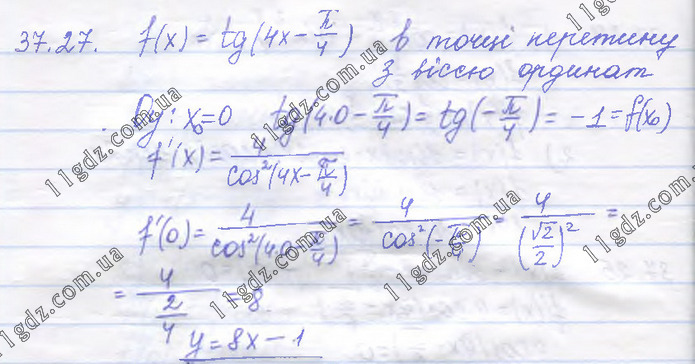 37.27. f(x) = tg(4x - π/4) в точці перетину
з віссю ординат
Oy: x₀=0 tg(4·0 - π/4) = tg(-π/4) = -1 = f(x₀)
f'(x) = 4/cos²(4x - π/4)
f'(0) = 4/cos²(4·0 - π/4) = 4/cos²(-π/4) = 4/(√2/2)² =
= 4/(2/4) = 8
y = 8x - 1
11gdz.com.ua
11gdz.com.ua
11gdz.com.ua
11gdz.com.ua
11gdz.com.ua
11gdz.com.ua
11gdz.com.ua